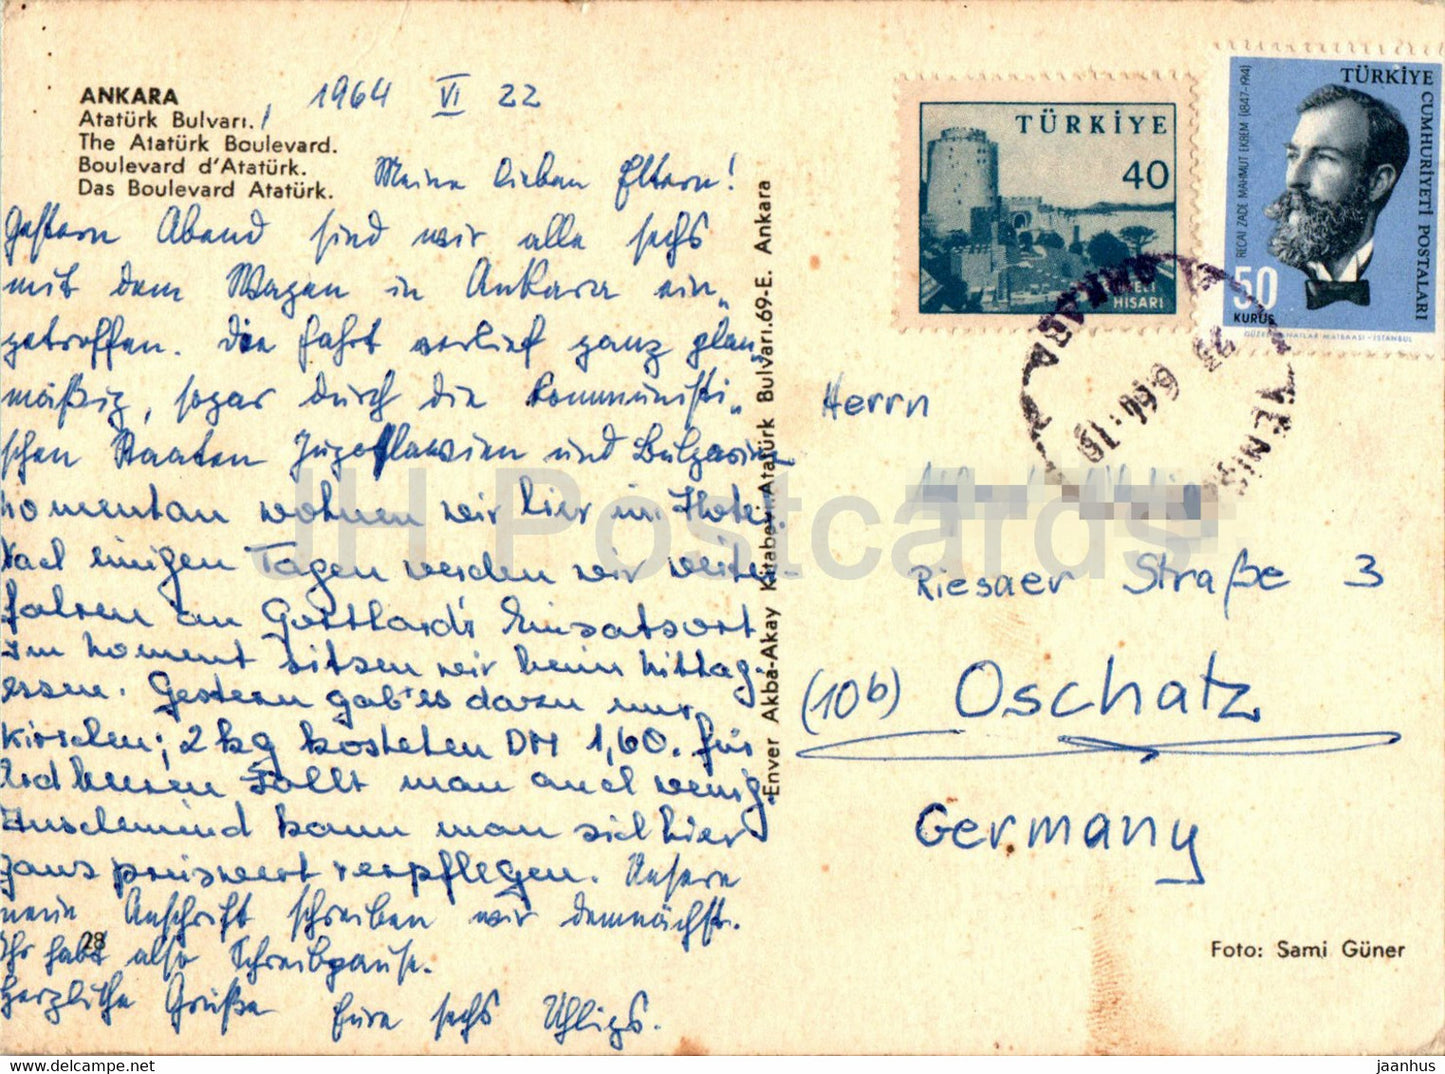 ANKARA
Atatürk Bulvarı.
The Atatürk Boulevard.
Boulevard d'Atatürk.
Das Boulevard Atatürk.
1964 VI 22
Meine lieben Eltern!
Gestern Abend sind wir alle sechs
mit dem Wagen in Ankara ein„
getroffen. Die Fahrt verlief ganz plan„
mäßig, sogar durch die kommunisti„
schen Staaten Jugoslawien und Bulgarien
Momentan wohnen wir hier im Hotel.
Nach einigen Tagen werden wir weiter-
fahren an Gotthards Einsatzort
Im Moment sitzen wir beim Mittag-
essen. Gestern gab es dazu nur
Kirschen; 2 kg kosteten DM 1,60. Für
Erdbeeren zahlt man auch wenig.
Anscheinend kann man sich hier
ganz preiswert verpflegen. Unsere
neue Anschrift schreiben wir demnächst.
Ihr habt also Schreibpause.
Herzliche Grüße Eure sechs Uhligs.
28
Enver Akba-Akay Kitabevi Atatürk Bulvarı.69-E. Ankara
TÜRKİYE
40
HİSARI
TÜRKİYE CUMHURİYETİ POSTALARI
RECAİ ZADE MAHMUT EKREM (1847-1914)
50
KURUŞ
GÜZEL SANATLAR MATBAASI - İSTANBUL
ANKARA
YENİŞ
Herrn
Riesaer Straße 3
(10b) Oschatz
Germany
Foto: Sami Güner
JH Postcards
jaanhus